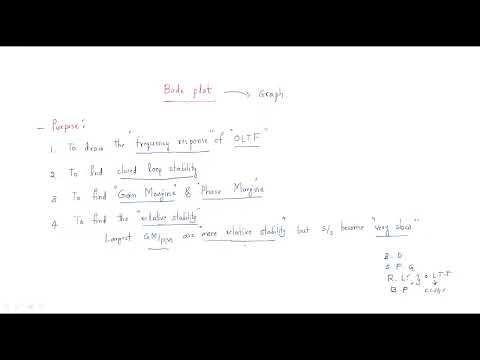 Bode plot → Graph
- Purpose:
1. To draw the "frequency response" of "OLTF"
2. To find closed loop stability
3. To find "Gain Margin" & "Phase Margin"
4. To find the "relative stability"
Largest GM/PM are "more relative stability" but S/S become "very slow"
B. D
S. F G
R. L. O.L.T.F
B. P